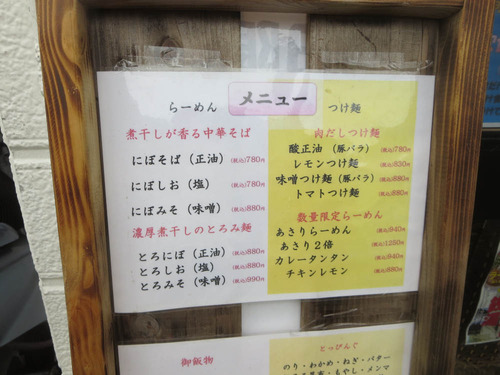 メニュー
らーめん
煮干しが香る中華そば
にぼそば（正油）(税込)780円
にぼしお（塩）(税込)780円
にぼみそ（味噌）(税込)880円
濃厚煮干しのとろみ麺
とろにぼ（正油）(税込)880円
とろしお（塩）(税込)880円
とろみそ（味噌）(税込)990円
つけ麺
肉だしつけ麺
酸正油（豚バラ）(税込)780円
レモンつけ麺 (税込)830円
味噌つけ麺（豚バラ）(税込)880円
トマトつけ麺 (税込)880円
数量限定らーめん
あさりらーめん (税込)940円
あさり２倍 (税込)1250円
カレータンタン (税込)940円
チキンレモン (税込)880円
御飯物
とっぴんぐ
のり・わかめ・ねぎ・バター
もやし・メンマ